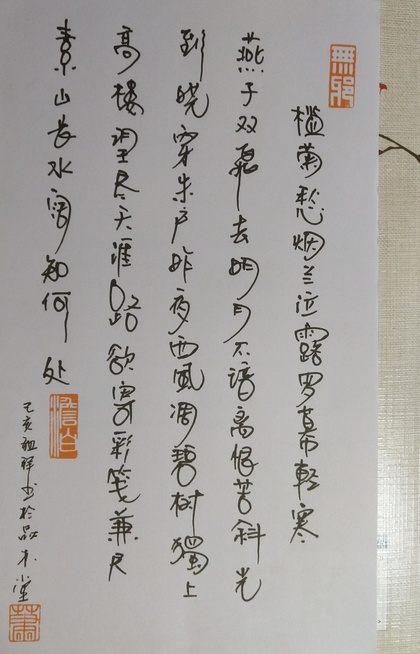 無邪
槛菊愁烟兰泣露罗幕軽寒
燕子双飛去明月不谙离恨苦斜光
到晓穿朱户昨夜西風凋碧树獨上
高楼望尽天涯路欲寄彩笺兼尺
素山长水阔知何处
己亥祖祥书於品木堂
蕭